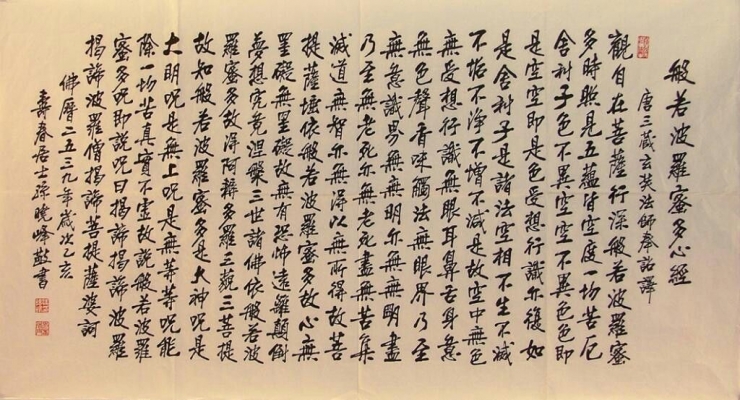 般若波羅蜜多心經
唐三藏玄奘法師奉詔譯
觀自在菩薩行深般若波羅蜜
多時照見五蘊皆空度一切苦厄
舍利子色不異空空不異色色即
是空空即是色受想行識亦復如
是舍利子是諸法空相不生不滅
不垢不淨不增不減是故空中無色
無受想行識無眼耳鼻舌身意
無色聲香味觸法無眼界乃至
無意識界無無明亦無無明盡
乃至無老死亦無老死盡無苦集
滅道無智亦無得以無所得故菩
提薩埵依般若波羅蜜多故心無
罣礙無罣礙故無有恐怖遠離顛倒
夢想究竟涅槃三世諸佛依般若波
羅蜜多故得阿耨多羅三藐三菩提
故知般若波羅蜜多是大神呪是
大明呪是無上呪是無等等呪能
除一切苦真實不虛故說般若波羅
蜜多呪即說呪曰揭諦揭諦波羅
揭諦波羅僧揭諦菩提薩婆訶
佛曆二五三九年歲次乙亥
壽春居士孫曉峰敬書